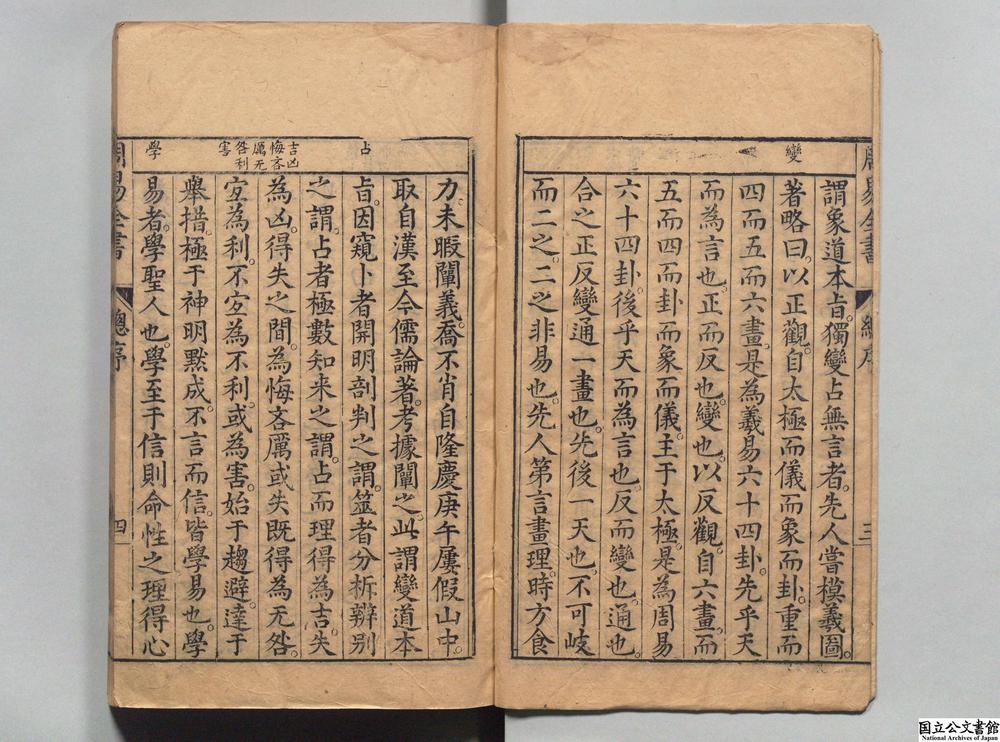 變
謂象道本㫖。獨變占無言者。先人嘗模義圖。
著略曰。以正觀。自太極而儀而象而卦。重而
四而五而六畫。是為羲易六十四卦。先乎天
而為言也。正而反也。變也。以反觀。自六畫。而
五而四而卦而象而儀。主于太極。是為周易
六十四卦。後乎天而為言也。反而變也。通也。
合之正反變通一畫也。先後一天也。不可岐
而二之。二之非易也。先人第言畫理。時方食
周易全書
總序
三
占
吉凶
悔吝
厲无
咎利
害
學
力未暇闡義。喬不肖自隆慶庚午屢假山中。
取自漢至今儒論著。考據闡之。此謂變道本
㫖。因窺卜者開明剖判之謂。筮者分析辨别
之謂。占者極數知来之謂。占而理得為吉。失
為凶。得失之間。為悔吝厲或失既得為无咎。
宜為利。不宜為不利。或為害。始于趨避。達于
舉措。極于神明默成。不言而信。皆學易也。學
易者。學聖人也。學至于信則命性之理得心
周易全書
總序
四
国立公文書館
National Archives of Japan